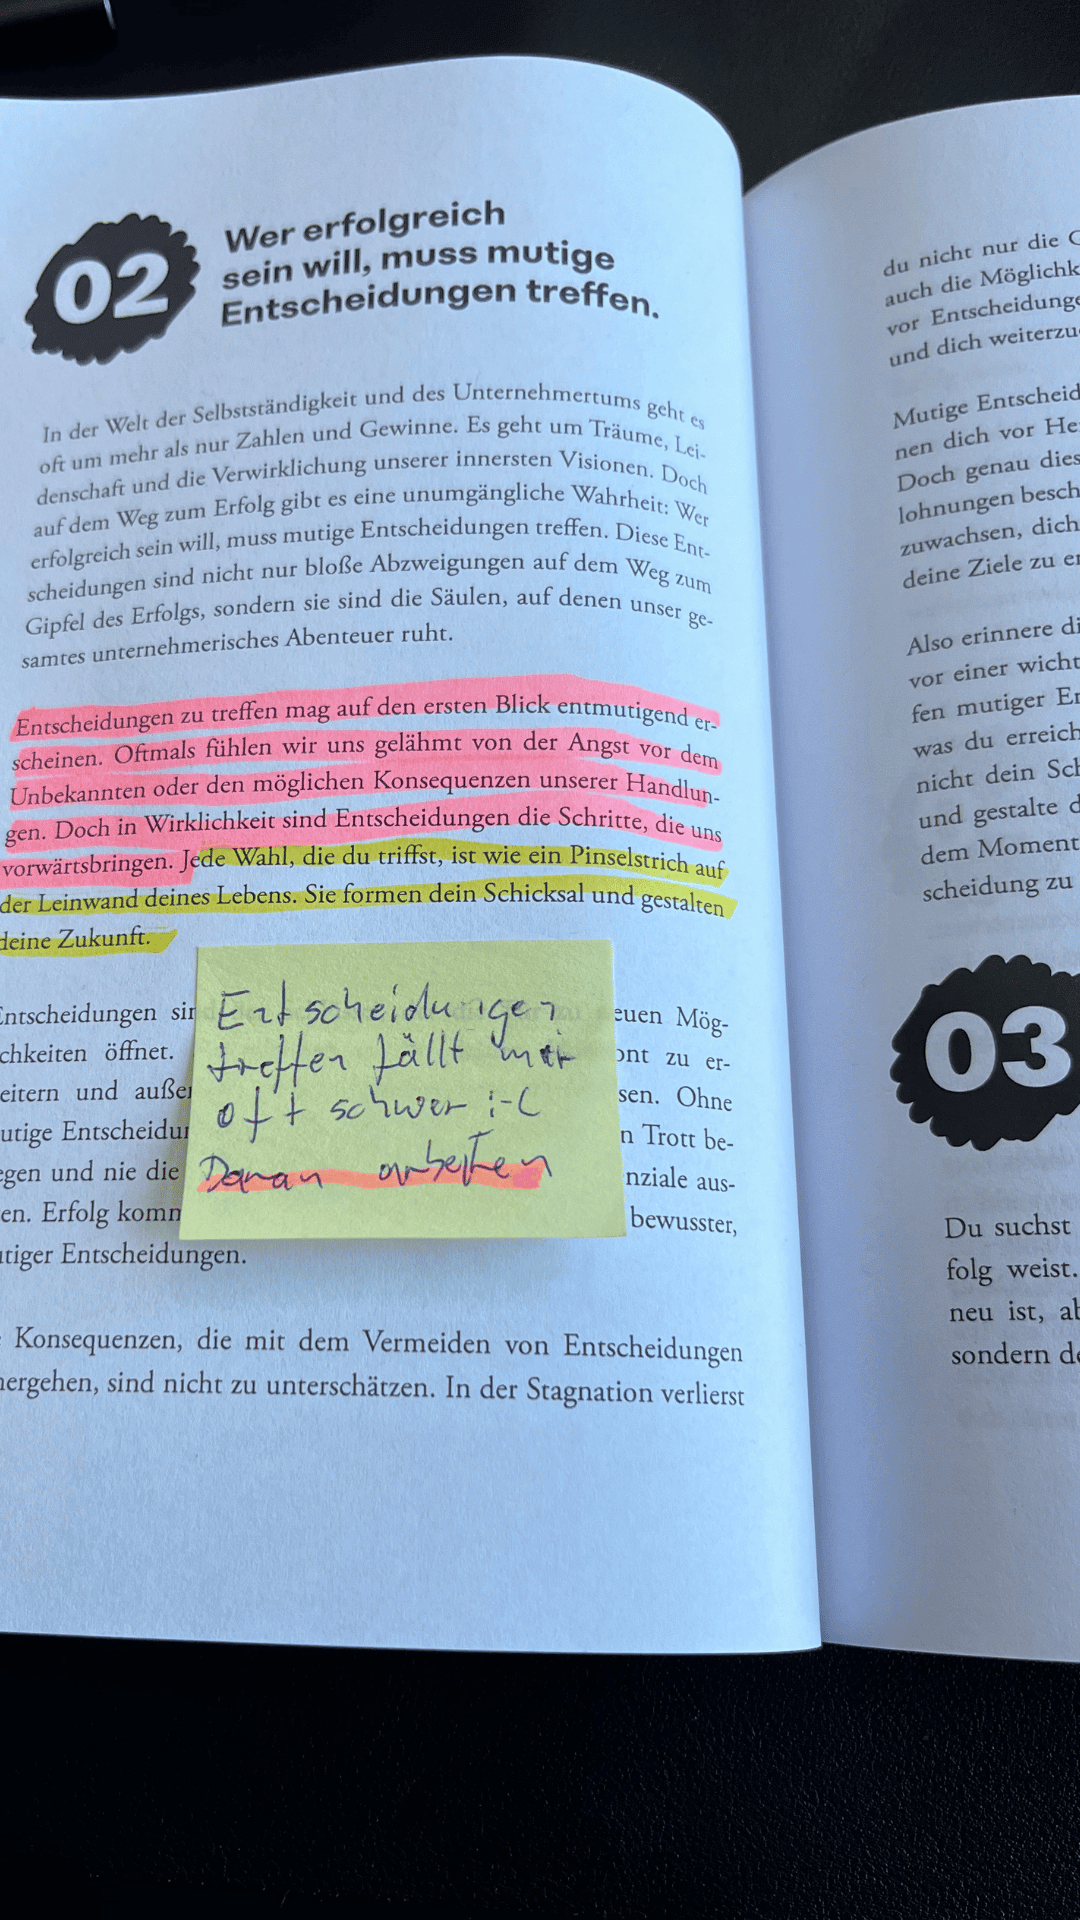 02
Wer erfolgreich
sein will, muss mutige
Entscheidungen treffen.
In der Welt der Selbstständigkeit und des Unternehmertums geht es
oft um mehr als nur Zahlen und Gewinne. Es geht um Träume, Lei-
denschaft und die Verwirklichung unserer innersten Visionen. Doch
auf dem Weg zum Erfolg gibt es eine unumgängliche Wahrheit: Wer
erfolgreich sein will, muss mutige Entscheidungen treffen. Diese Ent-
scheidungen sind nicht nur bloße Abzweigungen auf dem Weg zum
Gipfel des Erfolgs, sondern sie sind die Säulen, auf denen unser ge-
samtes unternehmerisches Abenteuer ruht.
Entscheidungen zu treffen mag auf den ersten Blick entmutigend er-
scheinen. Oftmals fühlen wir uns gelähmt von der Angst vor dem
Unbekannten oder den möglichen Konsequenzen unserer Handlun-
gen. Doch in Wirklichkeit sind Entscheidungen die Schritte, die uns
vorwärtsbringen. Jede Wahl, die du triffst, ist wie ein Pinselstrich auf
der Leinwand deines Lebens. Sie formen dein Schicksal und gestalten
deine Zukunft.
Entscheidungen sin euen Mög-
chkeiten öffnet. ont zu er-
eitern und außer sen. Ohne
utige Entscheidun n Trott be-
egen und nie die nziale aus-
en. Erfolg komm bewusster,
utiger Entscheidungen.
Konsequenzen, die mit dem Vermeiden von Entscheidungen
hergehen, sind nicht zu unterschätzen. In der Stagnation verlierst
Entscheidungen
treffen fällt mir
oft schwer :-(
Daran arbeiten
du nicht nur die
auch die Möglichk
vor Entscheidunge
und dich weiterzu
Mutige Entscheid
nen dich vor Her
Doch genau dies
lohnungen besch
zuwachsen, dich
deine Ziele zu er
Also erinnere di
vor einer wicht
fen mutiger En
was du erreich
nicht dein Sch
und gestalte d
dem Moment
scheidung zu
03
Du suchst
folg weist.
neu ist, ab
sondern de